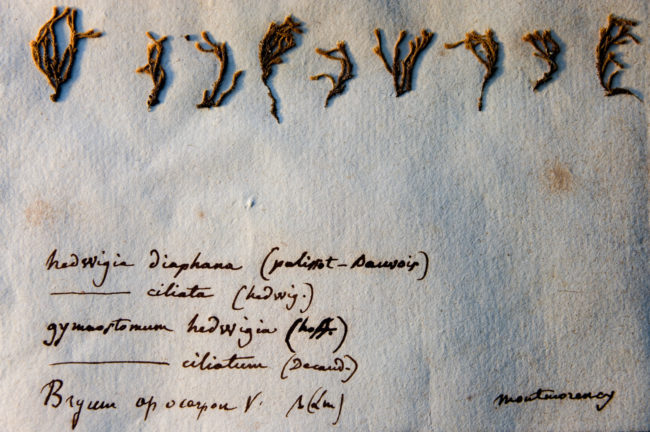 hedwigia diaphana (palissot-Bauvois)
——— ciliata (hedwig.)
gymnostomum hedwigia (hoffm.)
——— ciliatum (Decand.)
Bryum apocarpon V. (Lin)
montmorency